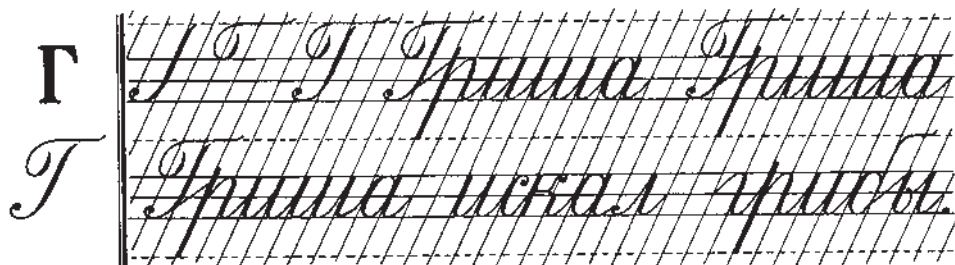 Г Г Г Гриша Гриша
Г Гриша искал грибы.